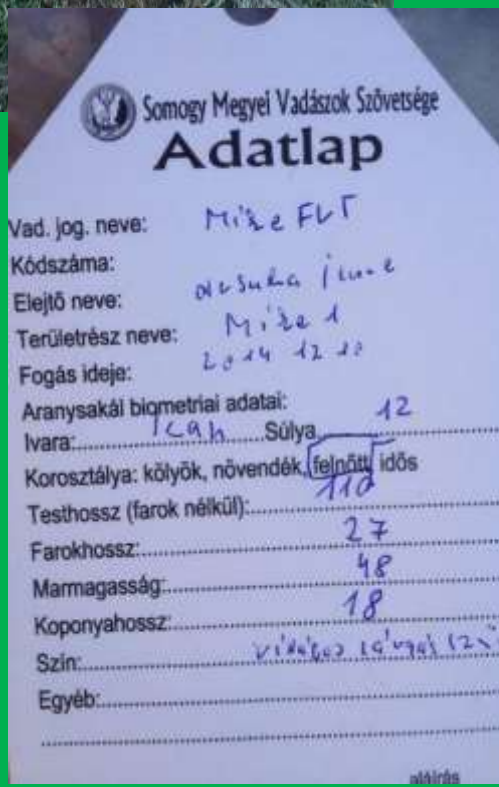 Somogy Megyei Vadászok Szövetsége
Adatlap
Vad. jog. neve: Mike FVT
Kódszáma:
Elejtő neve: Imre
Területrész neve: Mike 1
Fogás ideje: 2014 12 10
Aranysakál biometriai adatai:
Ivara: kan Súlya 12
Korosztálya: kölyök, növendék, felnőtt, idős
Testhossz (farok nélkül): 110
Farokhossz: 27
Marmagasság: 48
Koponyahossz: 18
Szín: világos
Egyéb:
aláírás